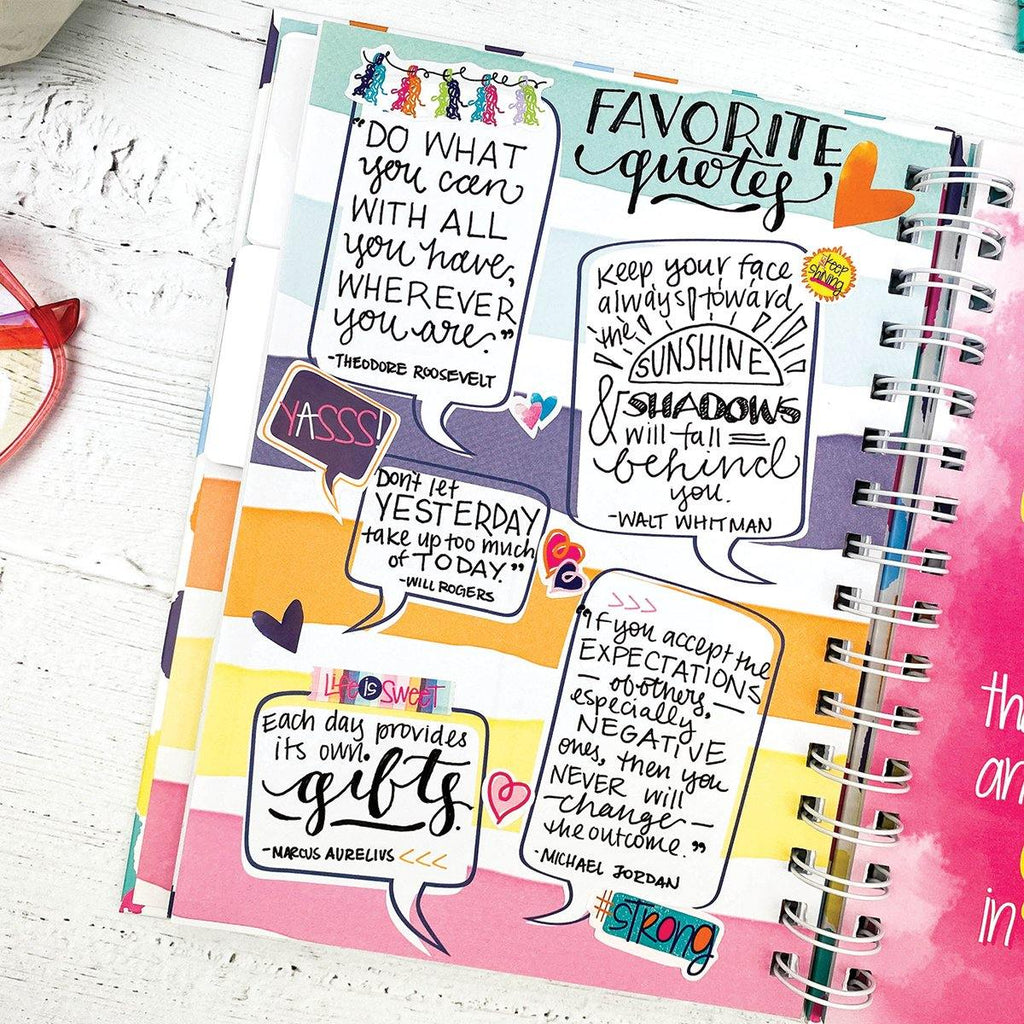 FAVORITE
quotes
"DO WHAT
you can
WITH ALL
you have,
WHEREVER
you are."
-THEODORE ROOSEVELT
keep your face
always toward
the
SUNSHINE
& SHADOWS
will fall
behind
you.
-WALT WHITMAN
keep
shining
YASSS!
Don't let
YESTERDAY
take up too much
of TODAY."
-WILL ROGERS
"If you accept the
EXPECTATIONS
of others,
especially
NEGATIVE
ones, then you
NEVER will
change
the outcome."
-MICHAEL JORDAN
#STRONG
Life is SWEET
Each day provides
its own
gifts.
-MARCUS AURELIUS <<<
th
an
in